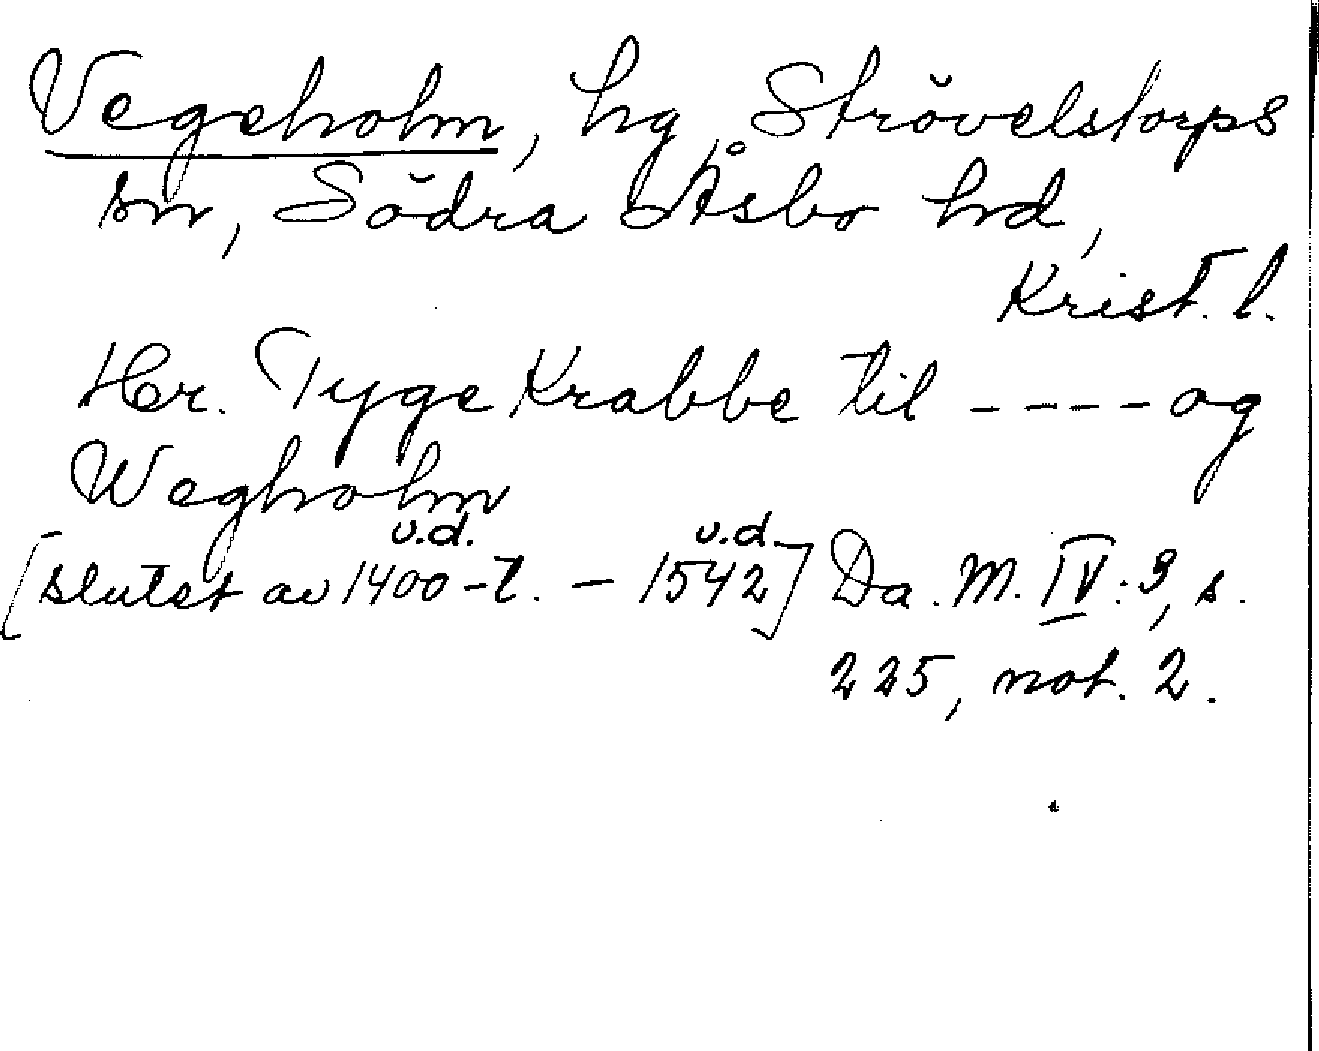 Vegeholm, hg, Strövelstorps
sn, Södra Åsbo hd,
Krist. l.
Hr. Tyge Krabbe til ---- og
Wegholm
u.d. u.d.
[slutet av 1400-t. – 1542] Da. M. IV:3, s.
225, not. 2.